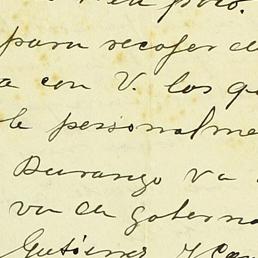 para recoger d
a con V. los q
le personalme
Durango va
va de goberna
Gutierrez